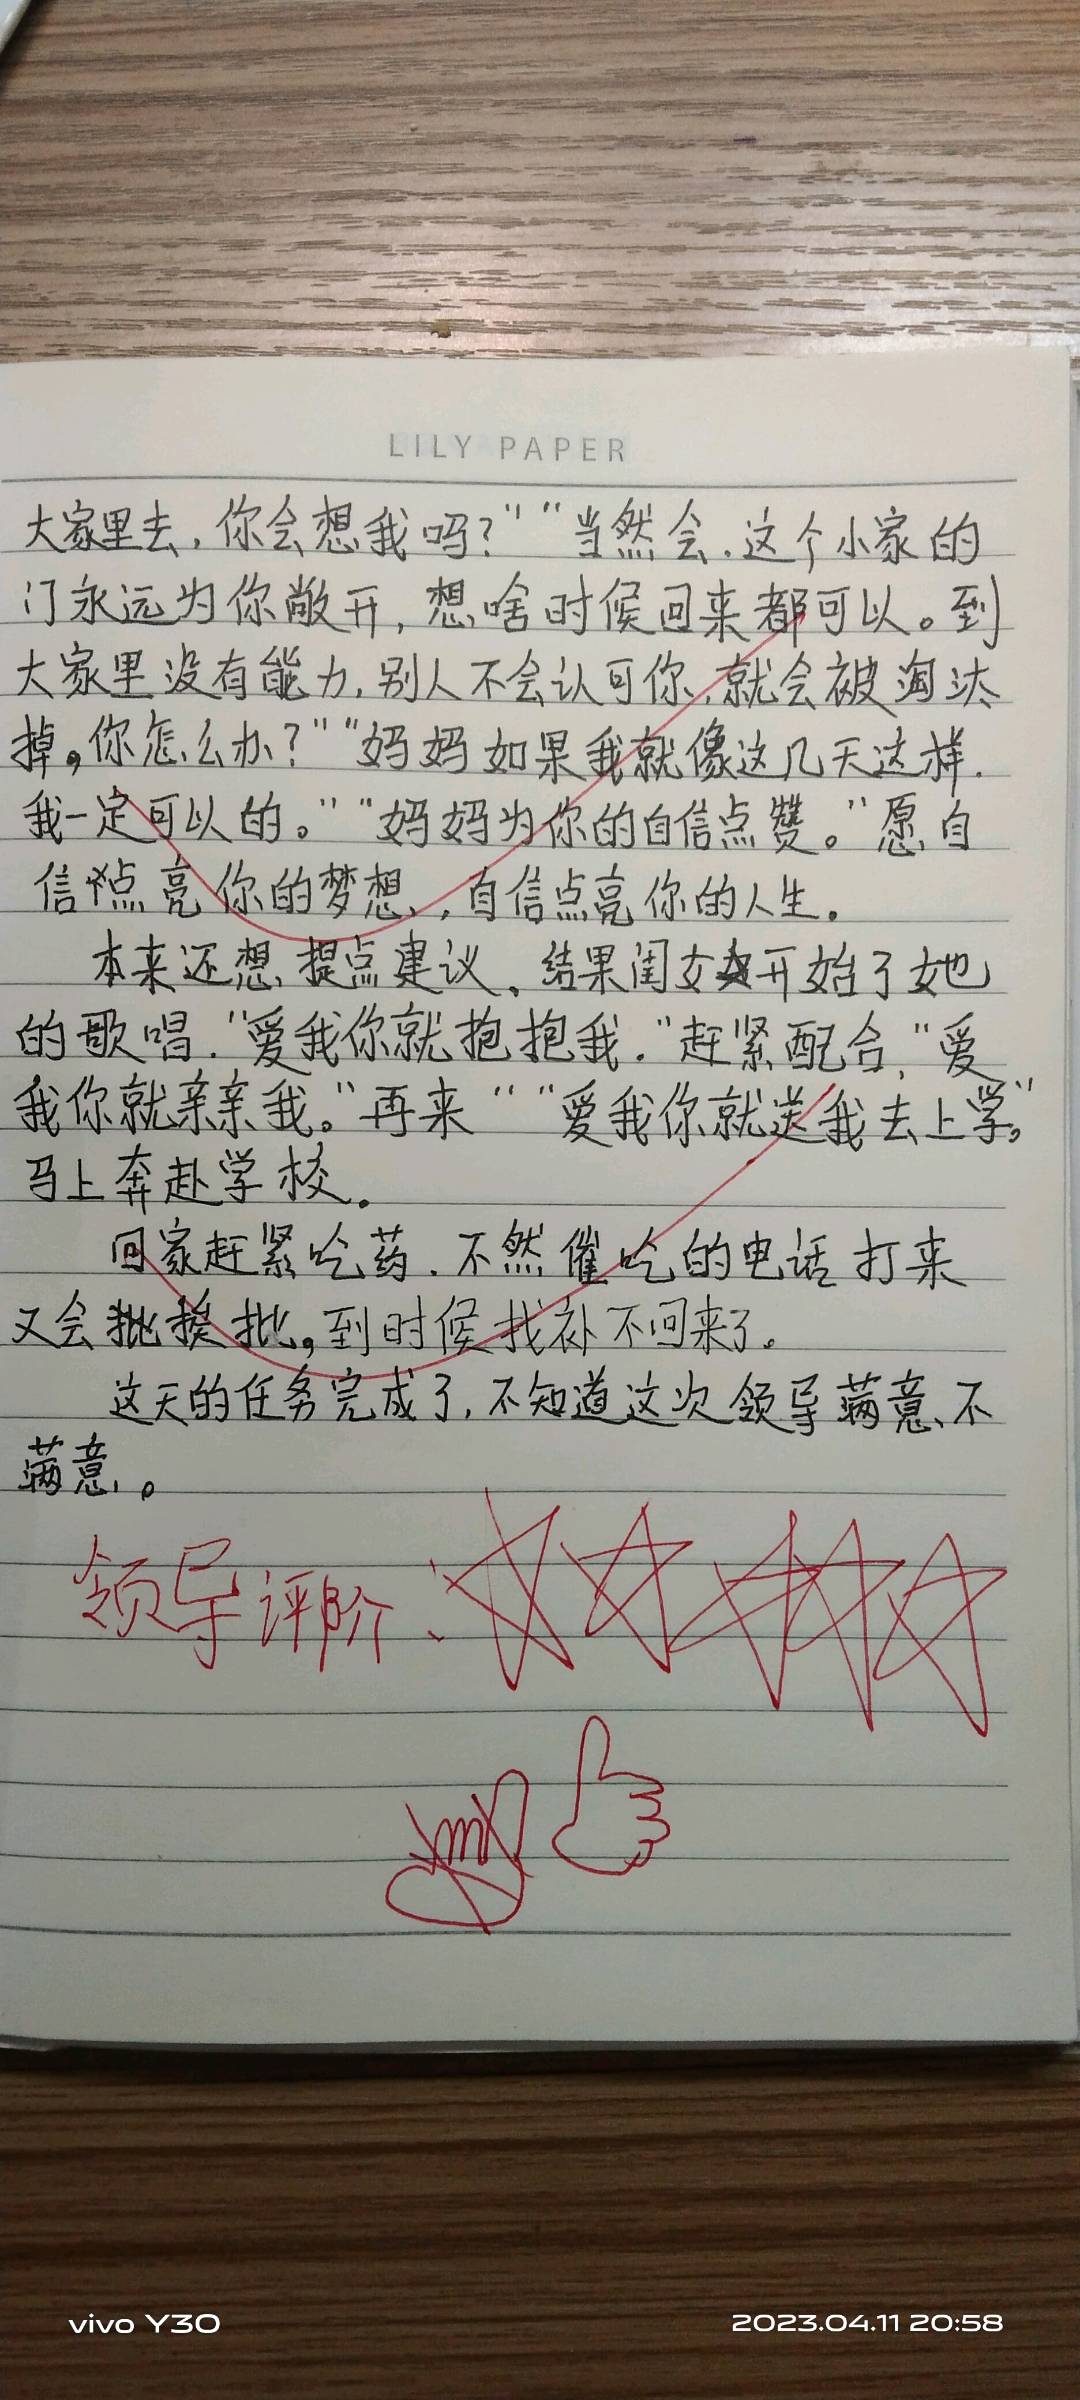 LILY PAPER
大家里去,你会想我吗?”“当然会.这个小家的
门永远为你敞开,想啥时候回来都可以。到
大家里没有能力,别人不会认可你,就会被淘汰
掉。你怎么办?”“妈妈如果我就像这几天这样.
我一定可以的。”“妈妈为你的自信点赞。”愿自
信点亮你的梦想,自信点亮你的人生。
本来还想提点建议,结果闺女开始了她
的歌唱.“爱我你就抱抱我.”赶紧配合,“爱
我你就亲亲我。”再来““爱我你就送我去上学。”
马上奔赴学校。
回家赶紧吃药.不然催吃的电话打来
又会批挨批,到时候找补不回来了。
这天的任务完成了,不知道这次领导满意、不
满意。
领导评阶:
vivo Y30
2023.04.11 20:58